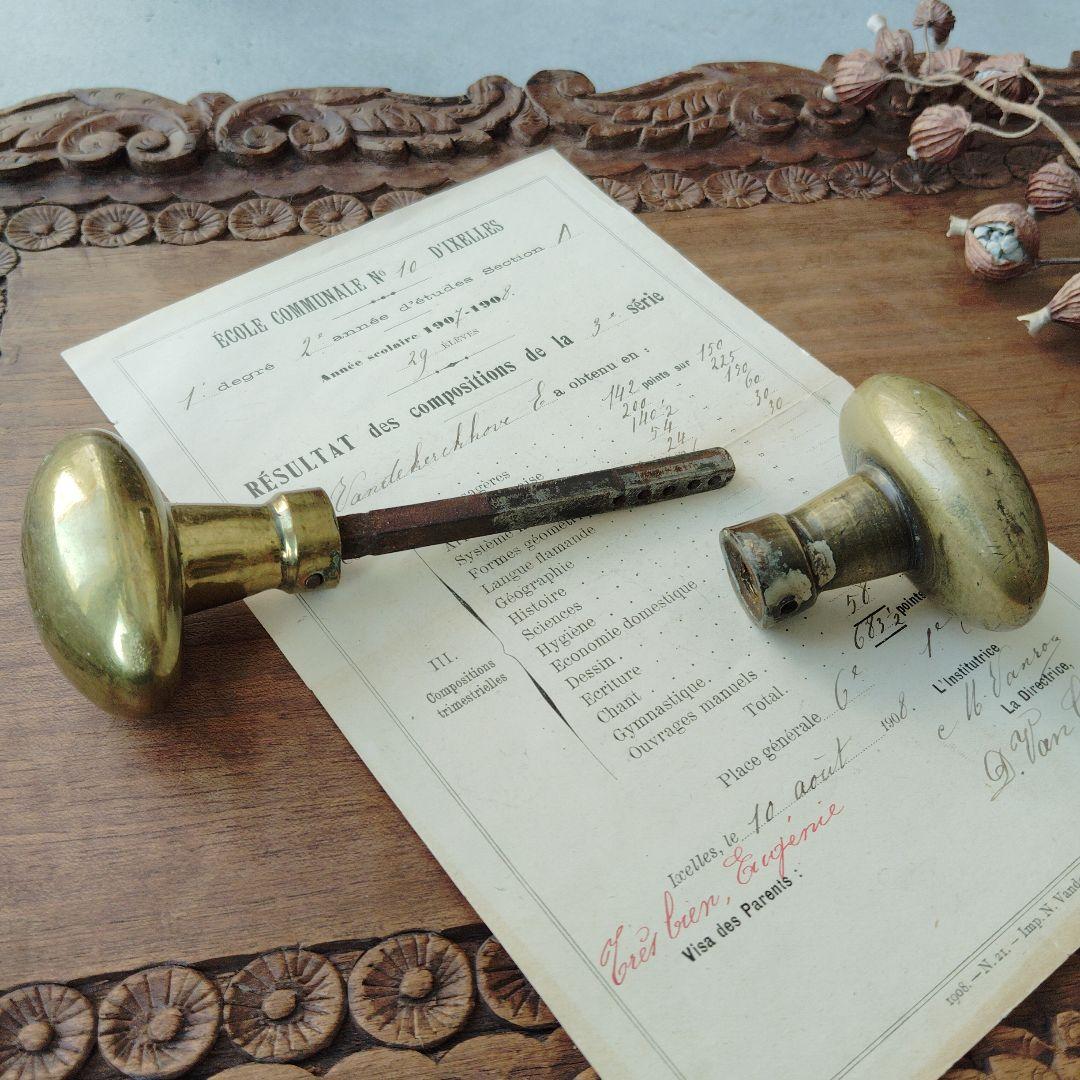 ÉCOLE COMMUNALE No 10 D'IXELLES
1r degré 2e année d'études Section A
Année scolaire 1907-1908.
29 ÉLÈVES
RÉSULTAT des compositions de la 3e série
Vandekerckhove E a obtenu en :
142 points sur 150
200 " 225
140 1/2 " 150
54 " 60
24 " 30
30
Système
Formes géométri
Langue flamande
Géographie
Histoire
Sciences
Hygiène
Economie domestique
Dessin.
Ecriture
Chant
Gymnastique.
Ouvrages manuels
III.
Compositions
trimestrielles
56
Total. 683 1/2 points
Place générale 6e
1re
Ixelles, le 10 août 1908.
L'Institutrice
La Directrice,
D. Van
Très bien, Eugénie
Visa des Parents :
1908. — N. 21. — Imp. N. Vand